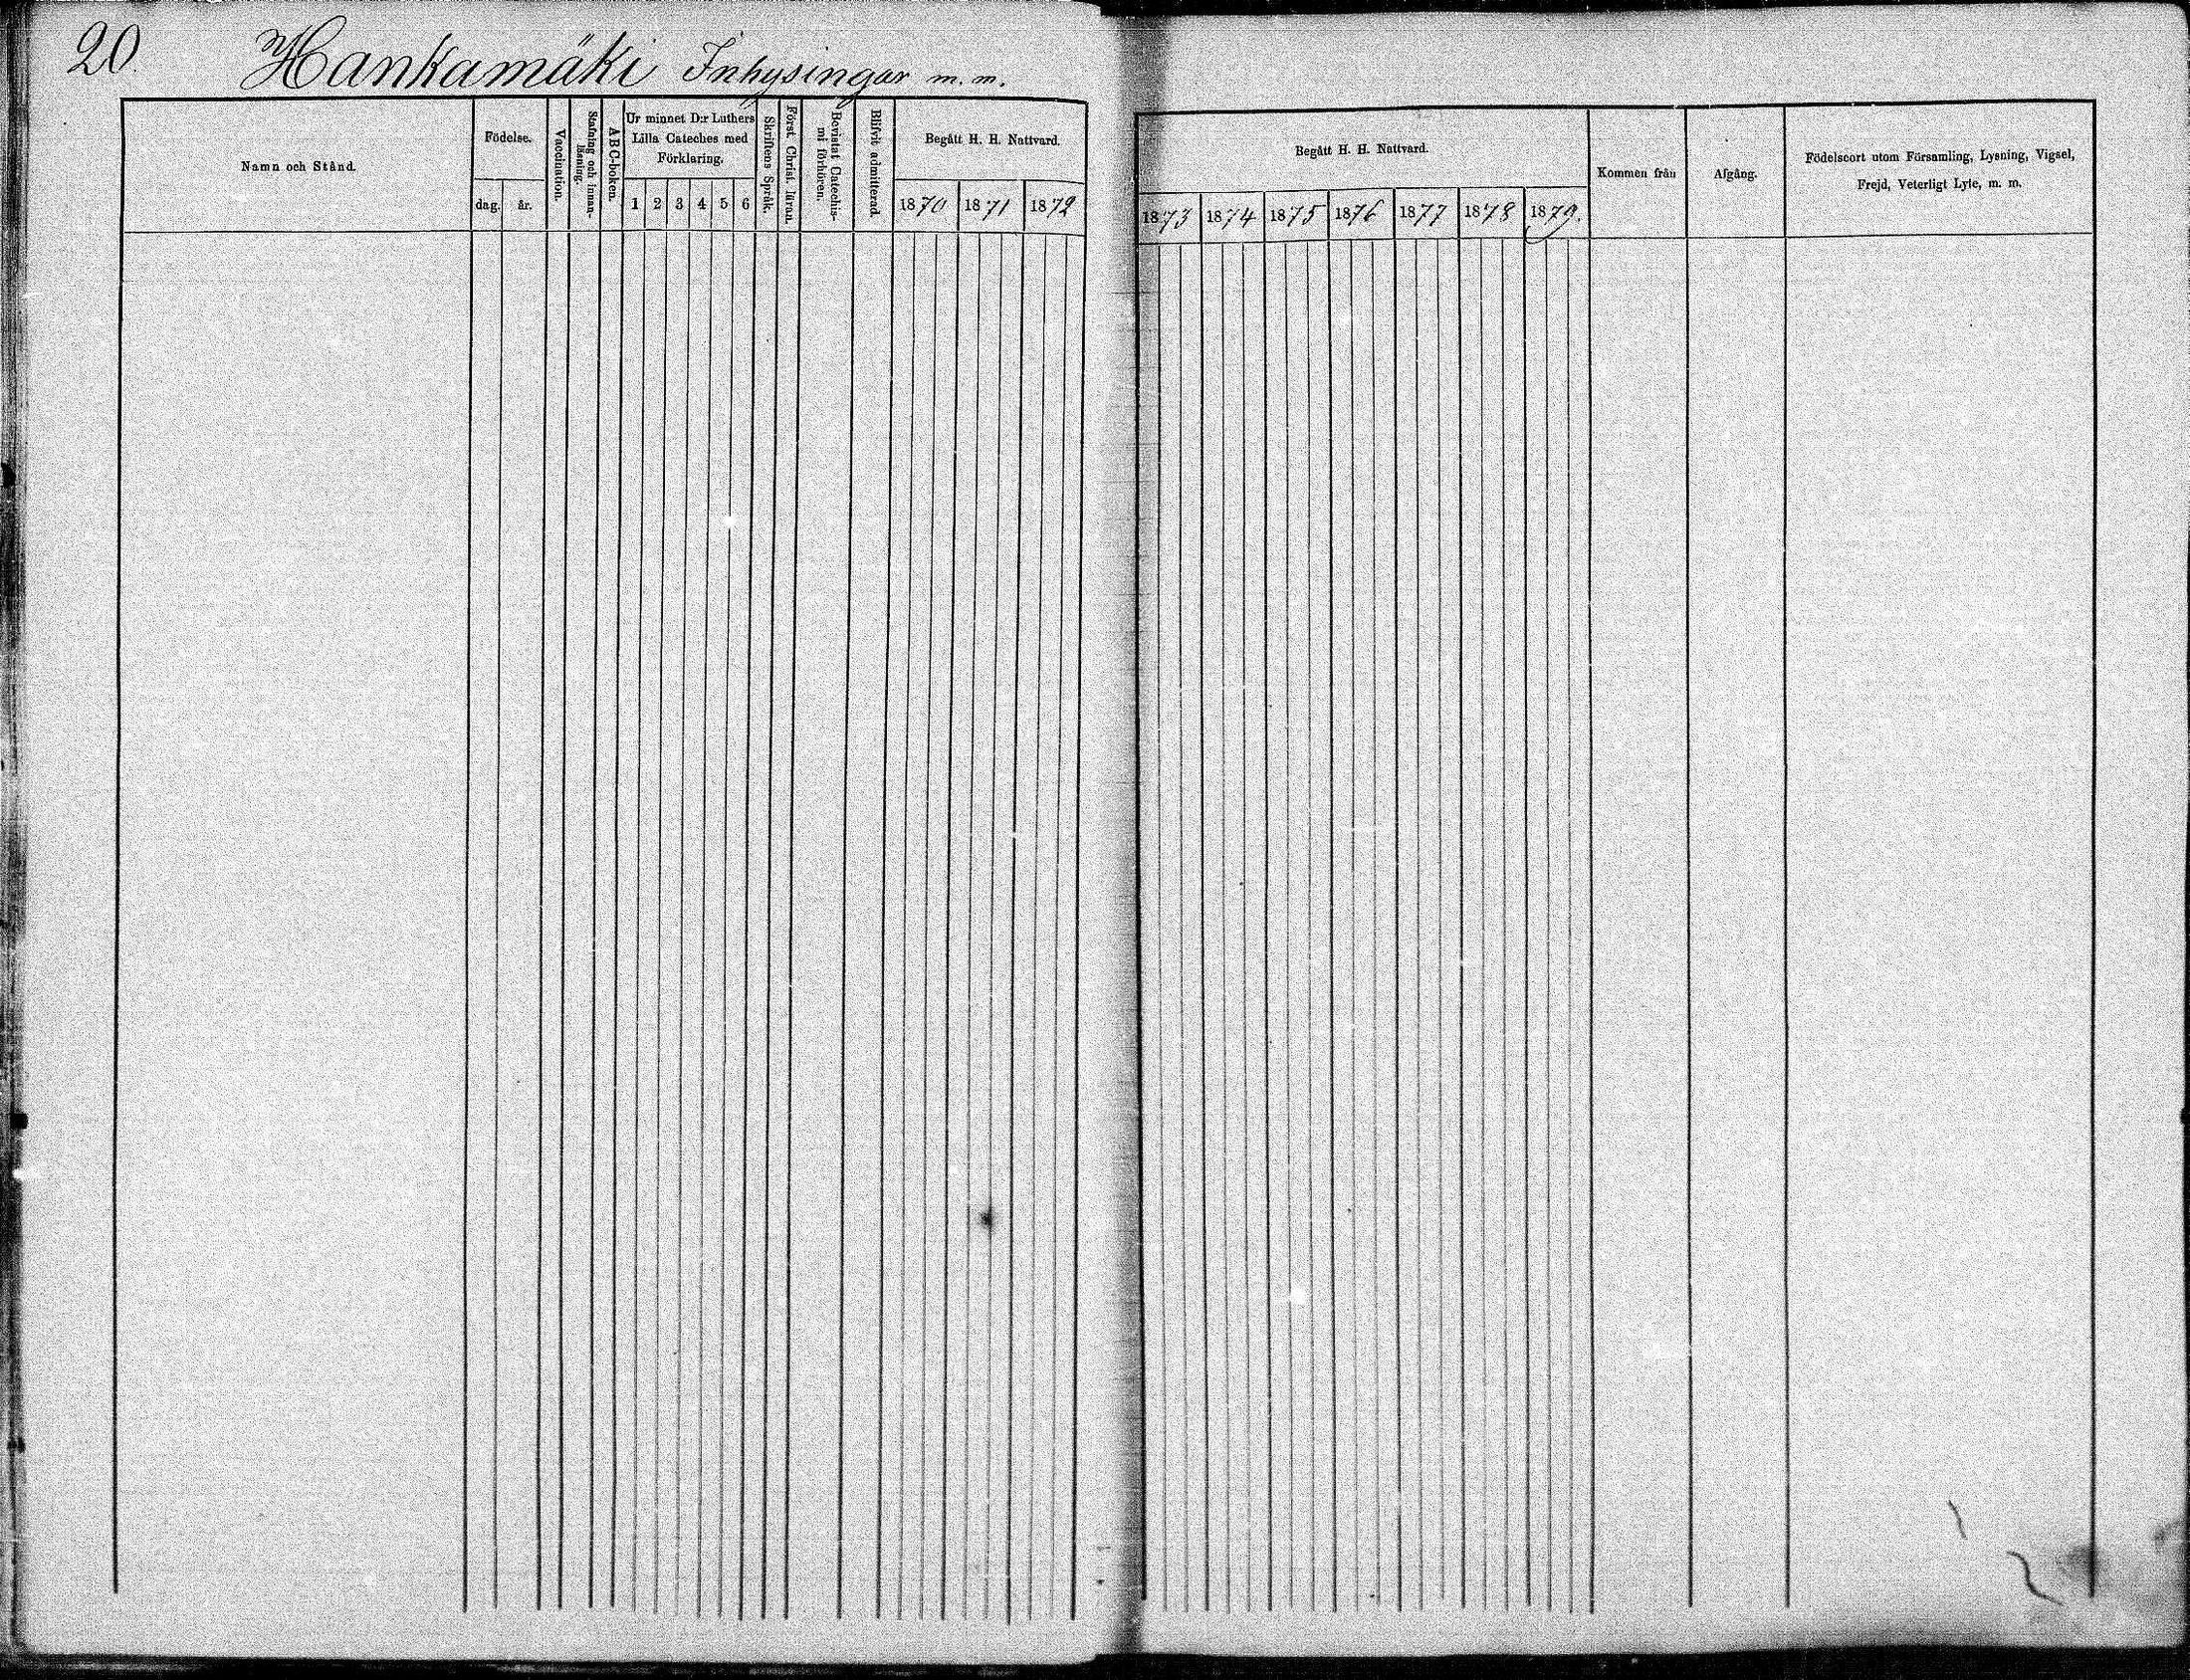 20.
Hankamäki Inhysingar m. m.
Namn och Stånd.
Födelse.
dag. år.
Vaccination.
Stafning och innan-
läsning.
ABC-boken.
Ur minnet D:r Luthers
Lilla Cateches med
Förklaring.
1 2 3 4 5 6
Skriftens Språk.
Först. Christ. läran.
Bevistat Catechis-
mi förhören.
Blifvit admitterad.
Begått H. H. Nattvard.
1870 1871 1872
Begått H. H. Nattvard.
1873 1874 1875 1876 1877 1878 1879.
Kommen från
Afgång.
Födelseort utom Församling, Lysning, Vigsel,
Frejd, Veterligt Lyte, m. m.